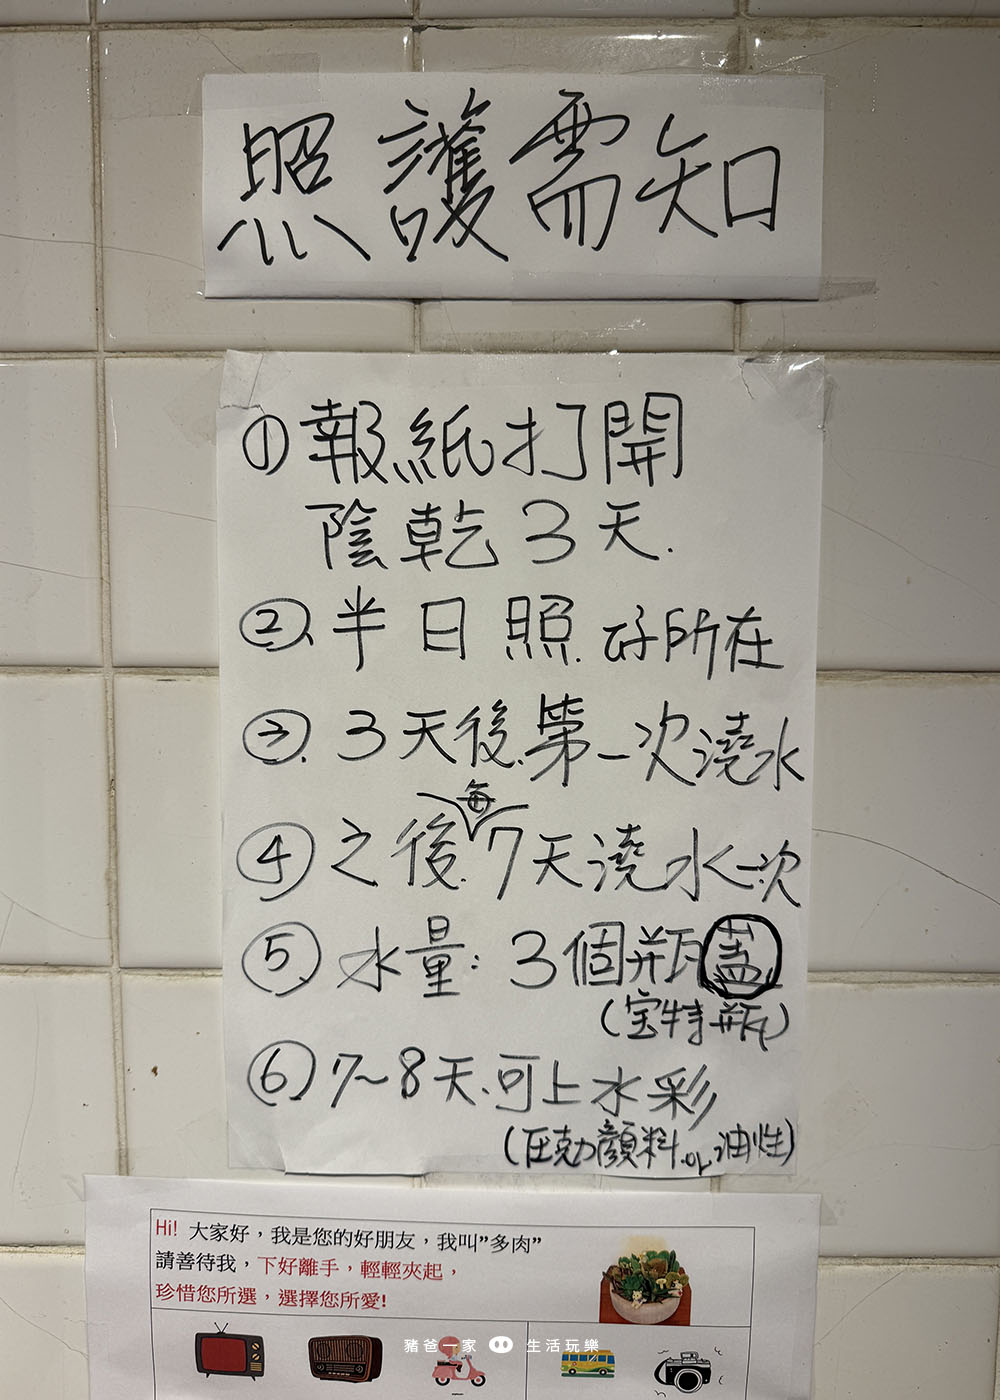 照護需知
①報紙打開
陰乾3天.
②.半日照.好所在
③.3天後.第一次澆水
每
④之後.7天澆水一次
⑤水量:3個瓶蓋
(宝特瓶)
⑥7~8天.可上水彩
(压克力顏料.or油性)
Hi! 大家好，我是您的好朋友，我叫"多肉"
請善待我，下好離手，輕輕夾起，
珍惜您所選，選擇您所愛!
豬爸一家 生活玩樂